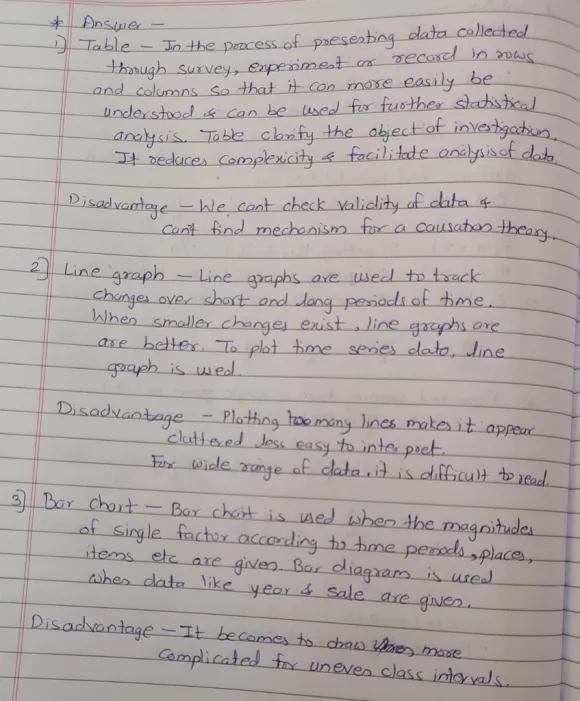 * Answer –
1) Table – In the process of presenting data collected
through survey, experiment or record in rows
and columns so that it can more easily be
understood & can be used for further statistical
analysis. Table clarify the object of investigation.
It reduces complexicity & facilitate analysis of data.
Disadvantage – We cant check validity of data &
can't find mechanism for a causation theory.
2) Line graph – Line graphs are used to track
changes over short and long periods of time.
When smaller changes exist, line graphs are
are better. To plot time series data, line
graph is used.
Disadvantage – Plotting too many lines makes it appear
cluttered less easy to interpret.
For wide range of data, it is difficult to read.
3) Bar chart – Bar chart is used when the magnitudes
of single factor according to time periods, places,
items etc are given. Bar diagram is used
when data like year & sale are given.
Disadvantage – It becomes to draw more
complicated for uneven class intervals.